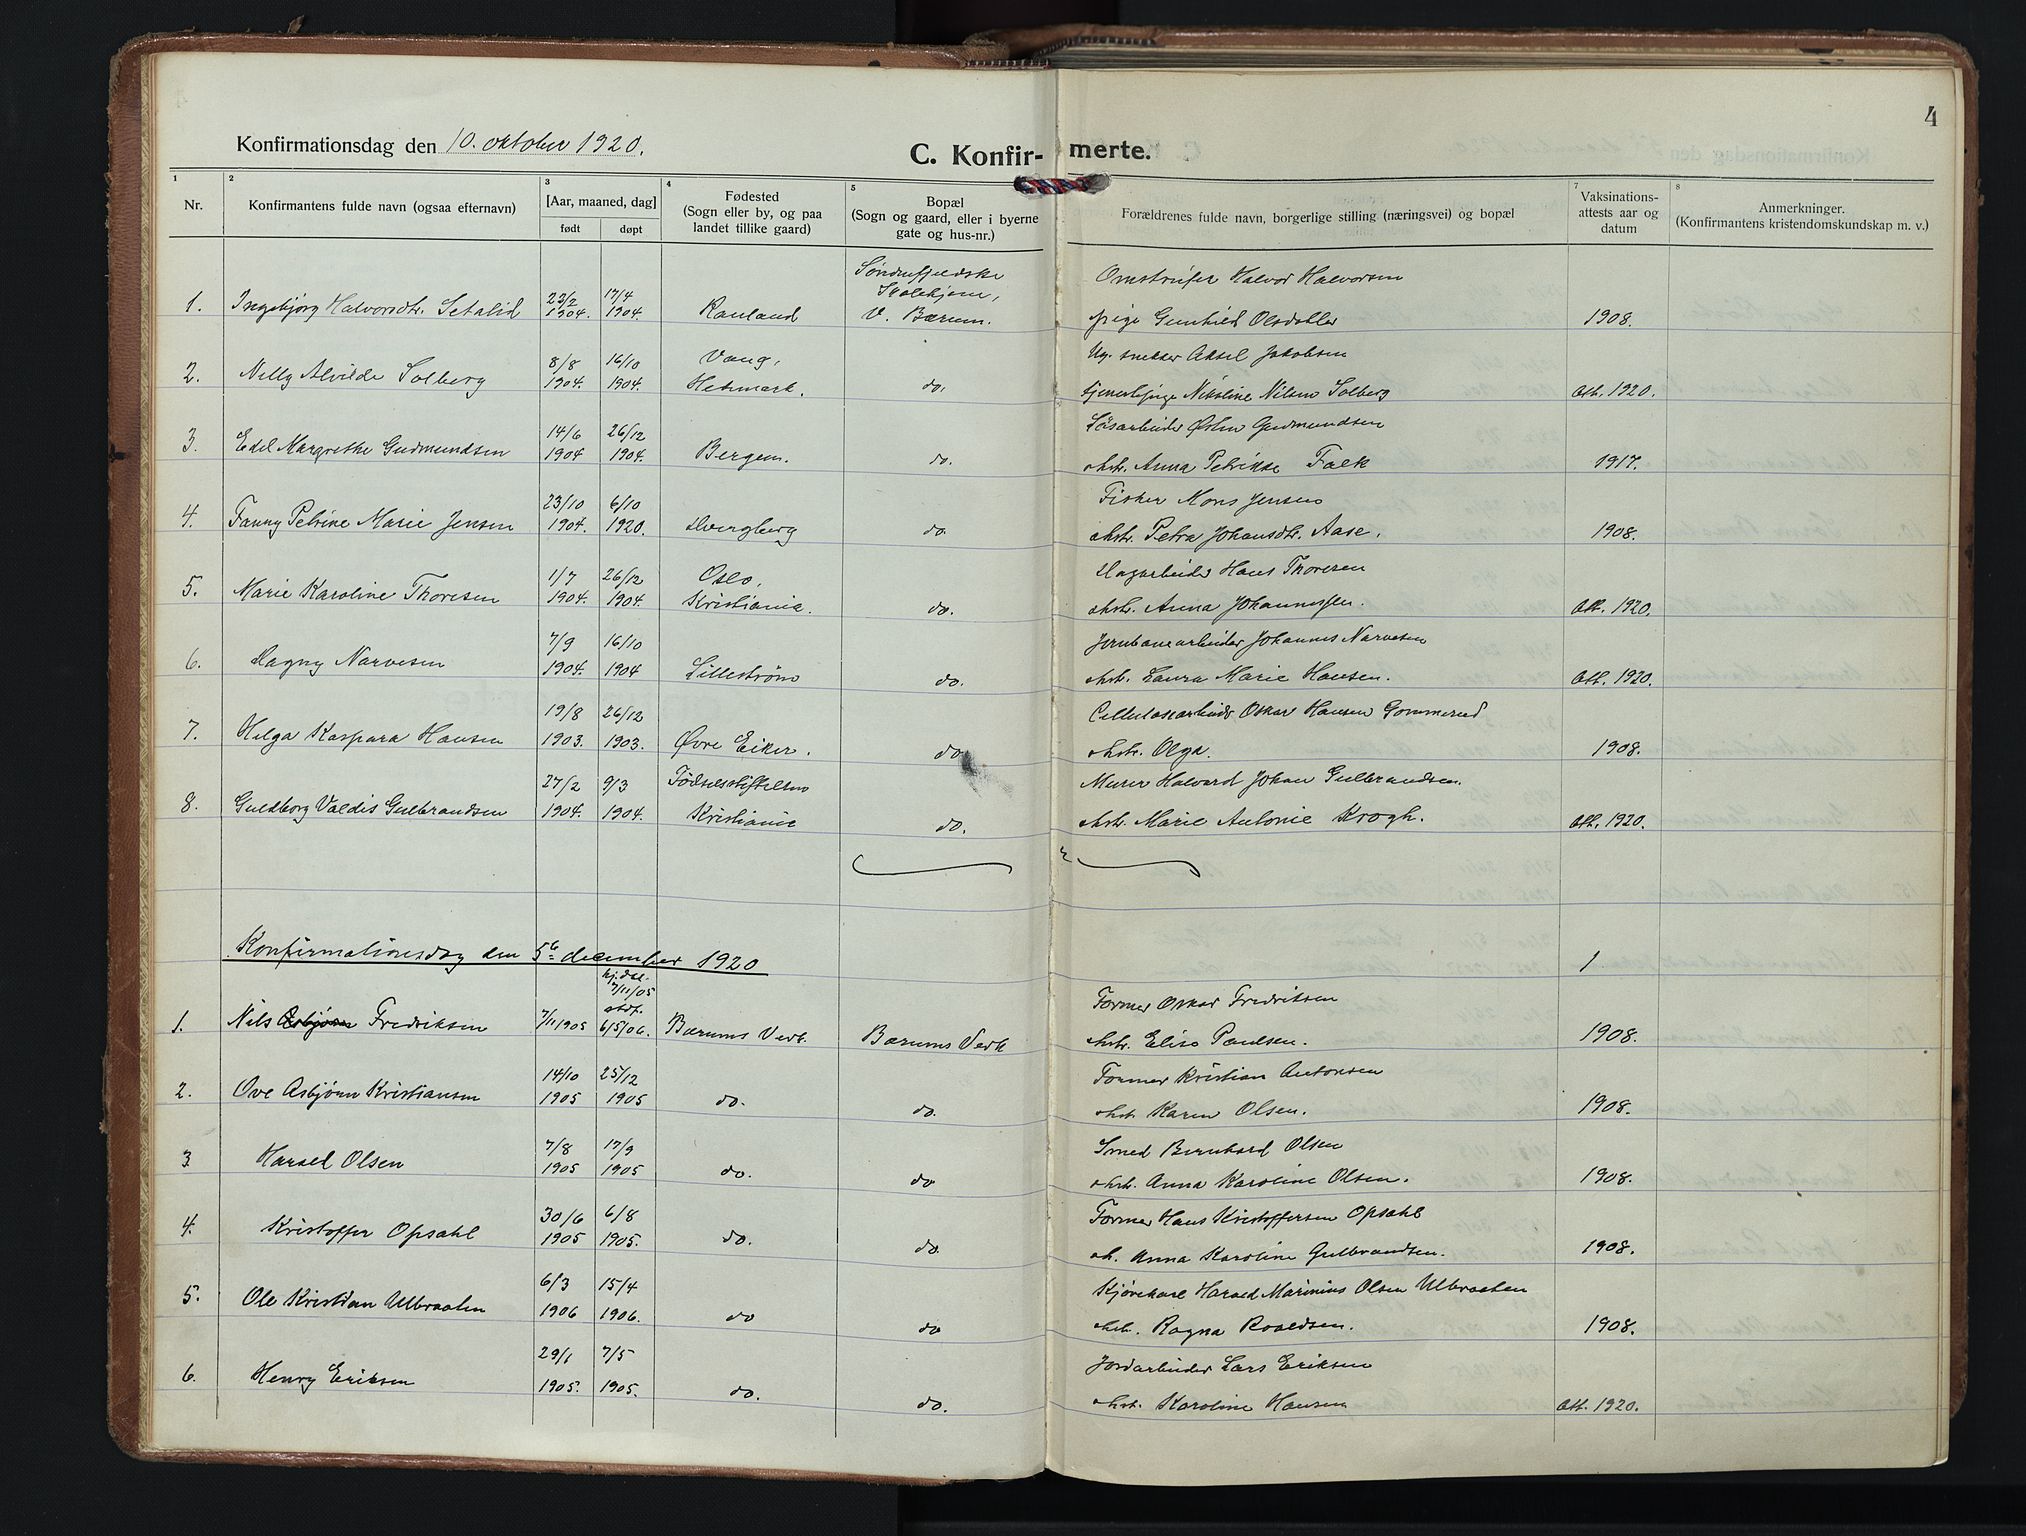 4
Konfirmationsdag den 10. oktober 1920.
C. Konfir-merte.
1 2 3 4 5 7 8
Nr.
Konfirmantens fulde navn (ogsaa efternavn)
[Aar, maaned, dag]
født døpt
Fødested
(Sogn eller by, og paa
landet tillike gaard)
Bopæl
(Sogn og gaard, eller i byerne
gate og hus-nr.)
Forældrenes fulde navn, borgerlige stilling (næringsvei) og bopæl
Vaksinations-
attests aar og
datum
Anmerkninger.
(Konfirmantens kristendomskundskap m. v.)
Søndenfjeldske
Skolehjem, Omstreifer Halvor Halvorsen
1. Ingebjørg Halvorsdtr. Setalid 23/2 1904. 17/4 1904. Rauland V. Bærum. pige Gunhild Olsdatter 1908.
8/8 16/10 Vang, Ug. snekker Aksel Jakobsen
2. Nelly Alvilde Solberg 1904. 1904. Hedmark. do. tjenestepige Nikoline Nilsen Solberg Att. 1920.
14/6 26/12 Gudmundsen
3. Edel Margrethe Gudmundsen 1904 1904. Bergen. do. Anna Petrikke Falk 1917.
23/10 6/10 Fisker Mons Jensen
4. Fanny Petrine Marie Jensen 1904. 1920. Dverberg do. Petra Johansdtr. Aase. 1908.
1/7 26/12 Oslo, Dagarbeider Hans Thoresen
5. Marie Karoline Thoresen 1904. 1904. Kristiania. do. Anna Johannessen. Att. 1920.
7/9 16/10 Jernbanearbeider Johannes Narvesen
6. Dagny Narvesen 1904. 1904 Lillestrøm do. Laura Marie Hansen. Att. 1920.
19/8 26/12 Cellulosearbeider Oskar Hansen Gommerud
7. Helga Kaspara Hansen 1903. 1903. Øvre Eiker. do. Olga. 1908.
27/2 9/3 Fødselsstiftelsen Murer Halvard Johan Gulbrandsen.
8. Guldborg Valdis Gulbrandsen 1904. 1904. Kristiania do. Marie Antonie Krogh. Att. 1920.
Konfirmationsdag den 5te december 1920
1
hj.døt.
7/11/05
stdf. Former Oskar Fredriksen
1. Nils Asbjørn Fredriksen 7/11 1905 6/5/06. Bærums Verk. Bærums Verk Elise Paulsen. 1908.
14/10 25/12 Former Kristian Antonsen
2. Ove Asbjørn Kristiansen 1905 1905 do. do. Karen Olsen. 1908.
7/8 17/9 Smed Bernhard Olsen
3 Harald Olsen 1905 1905 do. do Anna Karoline Olsen. 1908.
30/6 6/8 Former Hans Kristoffersen Opsahl
4. Kristoffer Opsahl 1905 1905. do. do. Anna Karoline Gulbrandsen. 1908.
6/3 15/4 Kjørekarl Harald Marinius Olsen Ulbraaten
5. Ole Kristian Ulbraaten 1906 1906. do do Ragna Roaldsen. 1908.
29/1 7/5 Jordarbeider Lars Eriksen
6. Henry Eriksen 1905. 1905. do. do. Karoline Hansen Att. 1920.